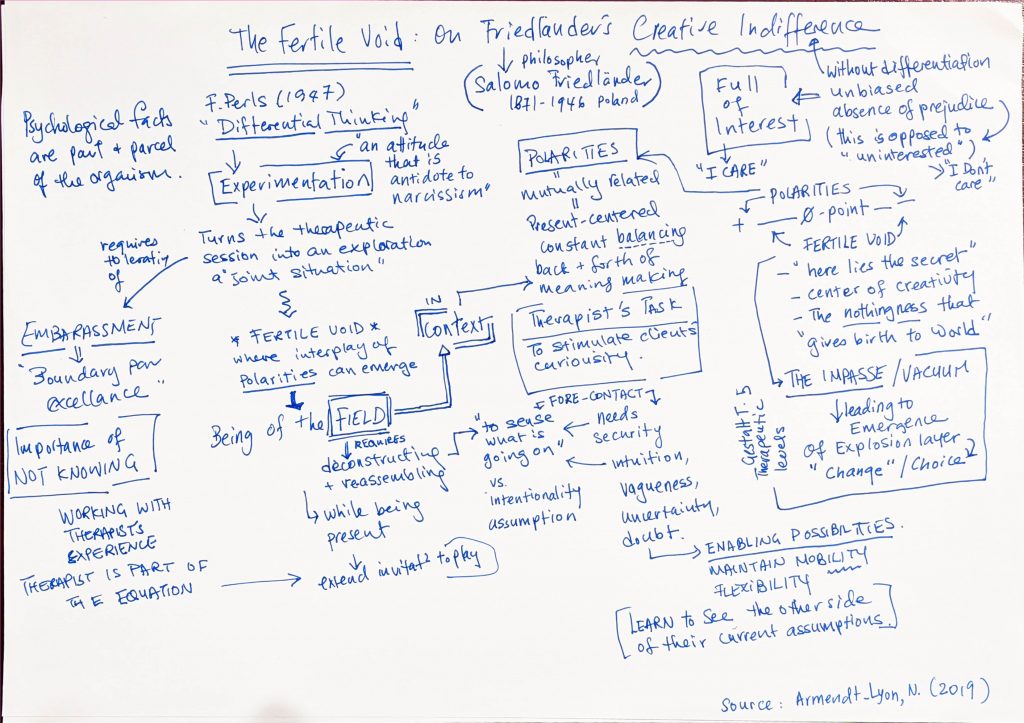 The Fertile Void: On Friedlander's Creative Indifference
philosopher
(Salomo Friedländer
1871-1946 Poland)
Full
of
Interest
"I CARE"
without differentiation
unbiased
absence of prejudice
(this is opposed to
"uninterested")
"I Don't
care"
Psychological facts
are part + parcel
of the organism.
F. Perls (1947)
"Differential Thinking"
"an attitude
that is
antidote to
narcissism"
Experimentation
Turns the therapeutic
session into an exploration
a "Joint situation"
requires
toleratiy
of
EMBARASSMENT
"Boundary par
excellance"
Importance of
NOT KNOWING
WORKING WITH
THERAPISTS
EXPERIENCE
THERAPIST IS PART OF
THE EQUATION
* FERTILE VOID *
where interplay of
Polarities can emerge
Being of the FIELD
IN
Context
REQUIRES
deconstructing
+ reassembling
while being
present
extend invitatn to play
POLARITIES
mutually related
Present-centered
constant balancing
back + forth of
meaning making
Therapist's TASK
To stimulate clients'
curiousity.
FORE-CONTACT
"to sense
what is
going on"
vs.
intentionality
assumption
needs
security
intuition,
vagueness,
uncertainty,
doubt.
ENABLING POSSIBILTIES.
MAINTAIN MOBILITY
FLEXIBILITY
[LEARN to See the other side
of their current assumptions.]
POLARITIES
+ 0-point -
FERTILE VOID
- "here lies the secret"
- center of creativity
- The nothingness that
"gives birth to World"
THE IMPASSE/VACUUM
leading to
Emergence
of Explosion layer
"Change"/Choice
GESTALT: 5
Therapeutic
levels
Source: Armendt-Lyon, N. (2019)